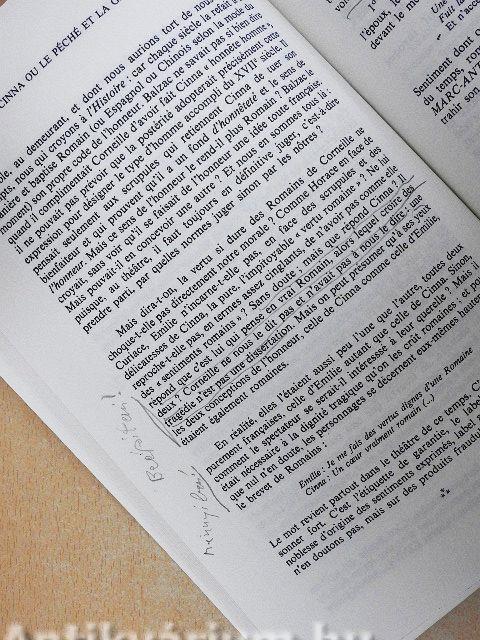 CINNA OU LE PÉCHÉ ET LA
au demeurant, et dont nous aurions tort de
nous qui croyons à l'Histoire : car chaque siècle la refait à
et baptise Romain (ou Espagnol) ou Chinois selon la mode du
moment) son propre code de l'honneur. Balzac ne savait pas si bien dire
quand il complimentait Corneille d'avoir fait Cinna « honnête homme »,
il ne pouvait pas prévoir que la postérité adopterait précisément cette
expression pour désigner le type d'homme accompli du XVIIe siècle. Il
pensait seulement aux scrupules qui retiennent Cinna de tuer son
bienfaiteur et qui prouvent qu'il a un fond d'honnêteté et le sens de
l'honneur. Mais ce sens de l'honneur le rend-il plus Romain ? Balzac le
croyait, sans voir qu'il se faisait de l'honneur une idée toute française.
Mais pouvait-il en concevoir une autre ? Et nous en sommes tous là :
puisque, au théâtre, il faut toujours en définitive juger, c'est-à-dire
prendre parti, par quelles normes juger sinon par les nôtres ?
Mais dira-t-on, la vertu si dure des Romains de Corneille ne
choque-t-elle pas directement notre morale ? Comme Horace en face de
Curiace, Emilie n'incarne-t-elle pas, en face des scrupules et des
délicatesses de Cinna, la pure, l'impitoyable « vertu romaine » ? Ne lui
reproche-t-elle pas en termes assez cinglants, de n'avoir pas comme elle
des « sentiments romains » ? Sans doute ; mais que répond Cinna ? Il
répond que c'est lui qui pense en vrai Romain. Alors lequel croire des
deux ? Corneille ne nous le dit pas et n'avait pas à nous le dire ; une
tragédie n'est pas une dissertation. Mais on peut présumer qu'à ses yeux,
les deux conceptions de l'honneur, celle de Cinna comme celle d'Emilie,
étaient également romaines.
En réalité, elles l'étaient aussi peu l'une que l'autre, toutes deux
purement françaises, celle d'Emilie autant que celle de Cinna. Sinon,
comment le spectateur se serait-il intéressé à leur querelle ? Mais il
était nécessaire à la dignité tragique qu'on les crût romaines ; et pour
que nul n'en doute, les personnages se décernent eux-mêmes hautement
le brevet de Romains :
Emilie : Je me fais des vertus dignes d'une Romaine
Cinna : Un cœur vraiment romain (...)
Le mot revient partout dans le théâtre de ce temps,
sonner fort. C'est l'étiquette de garantie, le label
noblesse d'origine des sentiments exprimés, label
n'en doutons pas, mais sur des produits
l'époux, le
devant le
Sentiment dont
du temps,
MARC-ANT
trahir son
Antikvárium.hu